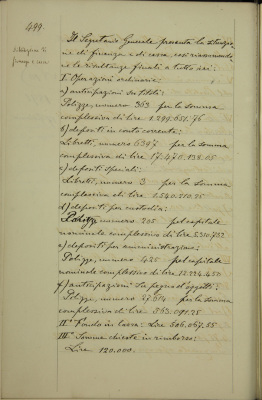 499.
Situazione di
finanza e cassa
Il Segretario Generale presenta la situazio-
ne di finanza e di cassa, così riassumendo-
ne le risultanze finali a tutto ieri:
I. Operazioni ordinarie:
a) anticipazioni su titoli:
Polizze, numero 363 per la somma
complessiva di lire 1.299.651.76
b) depositi in conto corrente:
Libretti, numero 6397 per la somma
complessiva di lire 17.476.138.65
c) depositi speciali:
Libretti, numero 3 per la somma
complessiva di lire 1.540.510.25
d) depositi per custodia:
Polizze numero 205 pel capitale
nominale complessivo di lire 2.310.732
e) depositi per amministrazione:
Polizze, numero 425 pel capitale
nominale complessivo di lire 12.224.450
f) anticipazioni su pegno d'oggetti:
Polizze, numero 27.614 per la somma
complessiva di lire 863.091.25
II.° Fondo in cassa: Lire 606.067.55
III.° Somme chieste in rimborso:
Lire 120.000.